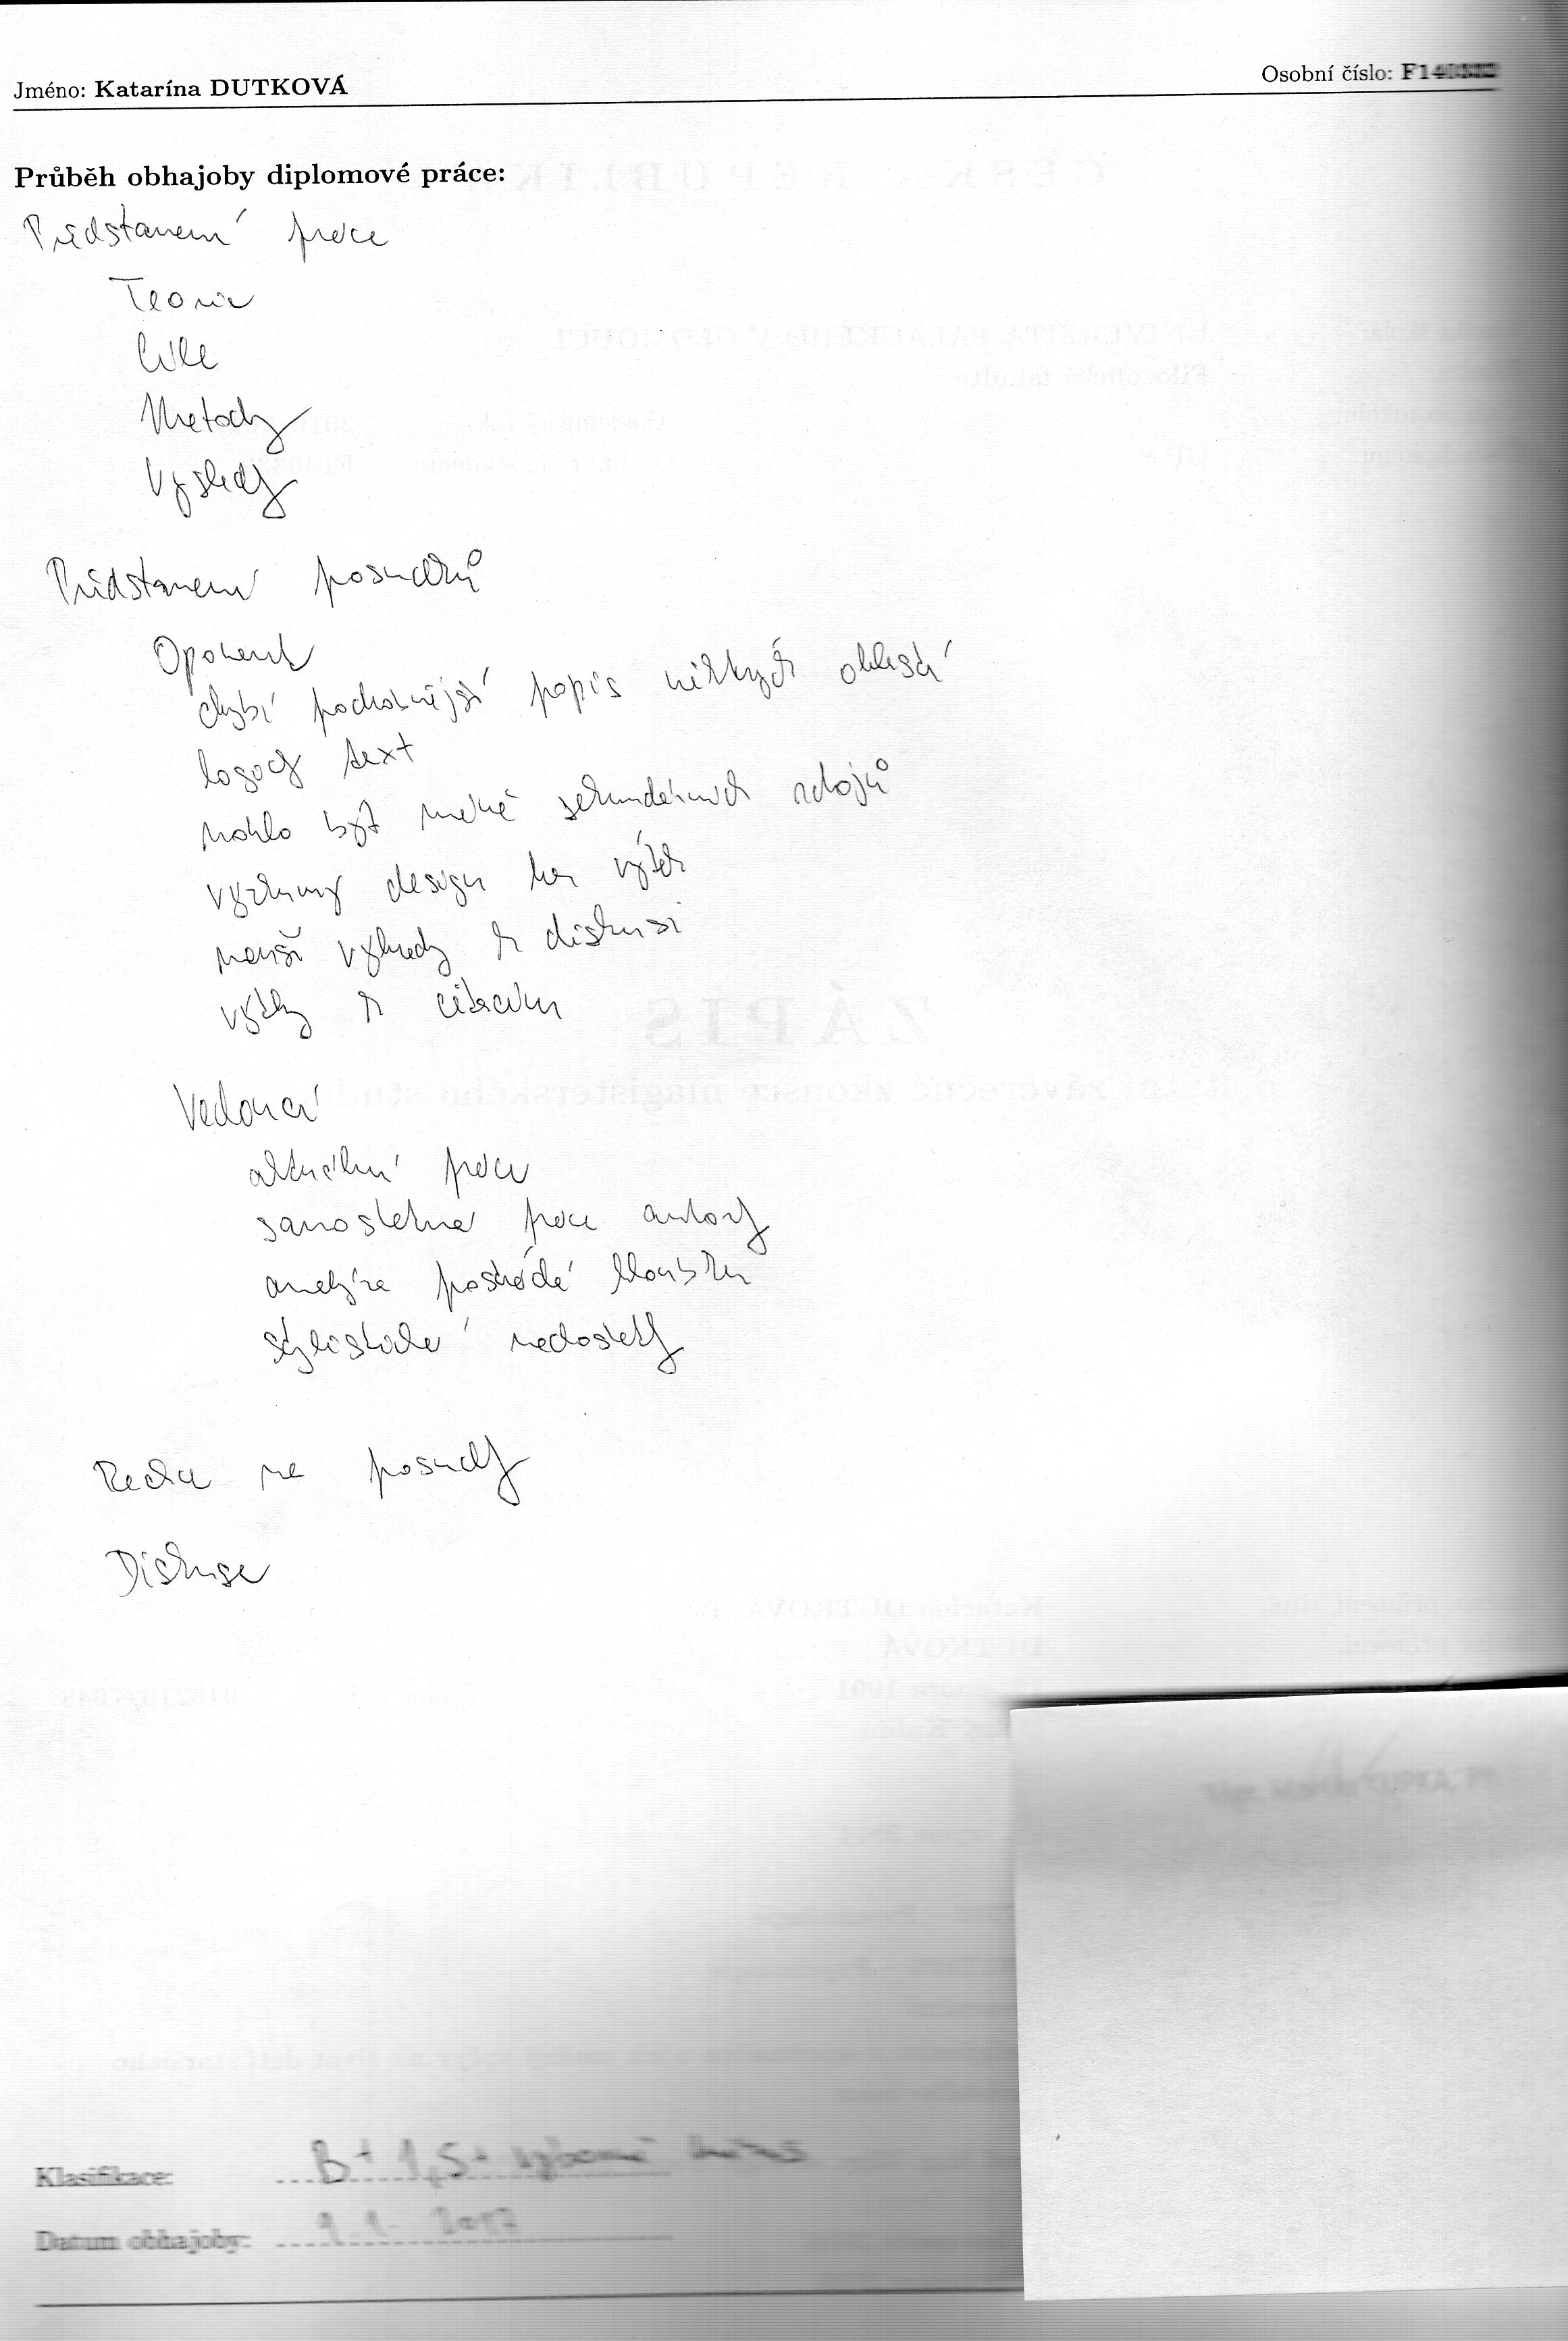 Jméno: Katarína DUTKOVÁ
Osobní číslo: F140
Průběh obhajoby diplomové práce:
Představení práce
Teorie
Cíle
Metody
Výsledky
Představení posudků
Oponent
chybí podrobnější popis některých oblastí
logický text
mohlo být méně sekundárních zdrojů
výzkumný design bez výtek
menší výhrady k diskusi
výtky k citacím
Vedoucí
aktuální práce
samostatná práce autorky
analýza postrádá hloubku
stylistické nedostatky
Reakce na posudky
Diskuse
Klasifikace: B+ 1,5+ výborně minus
Datum obhajoby: 2017